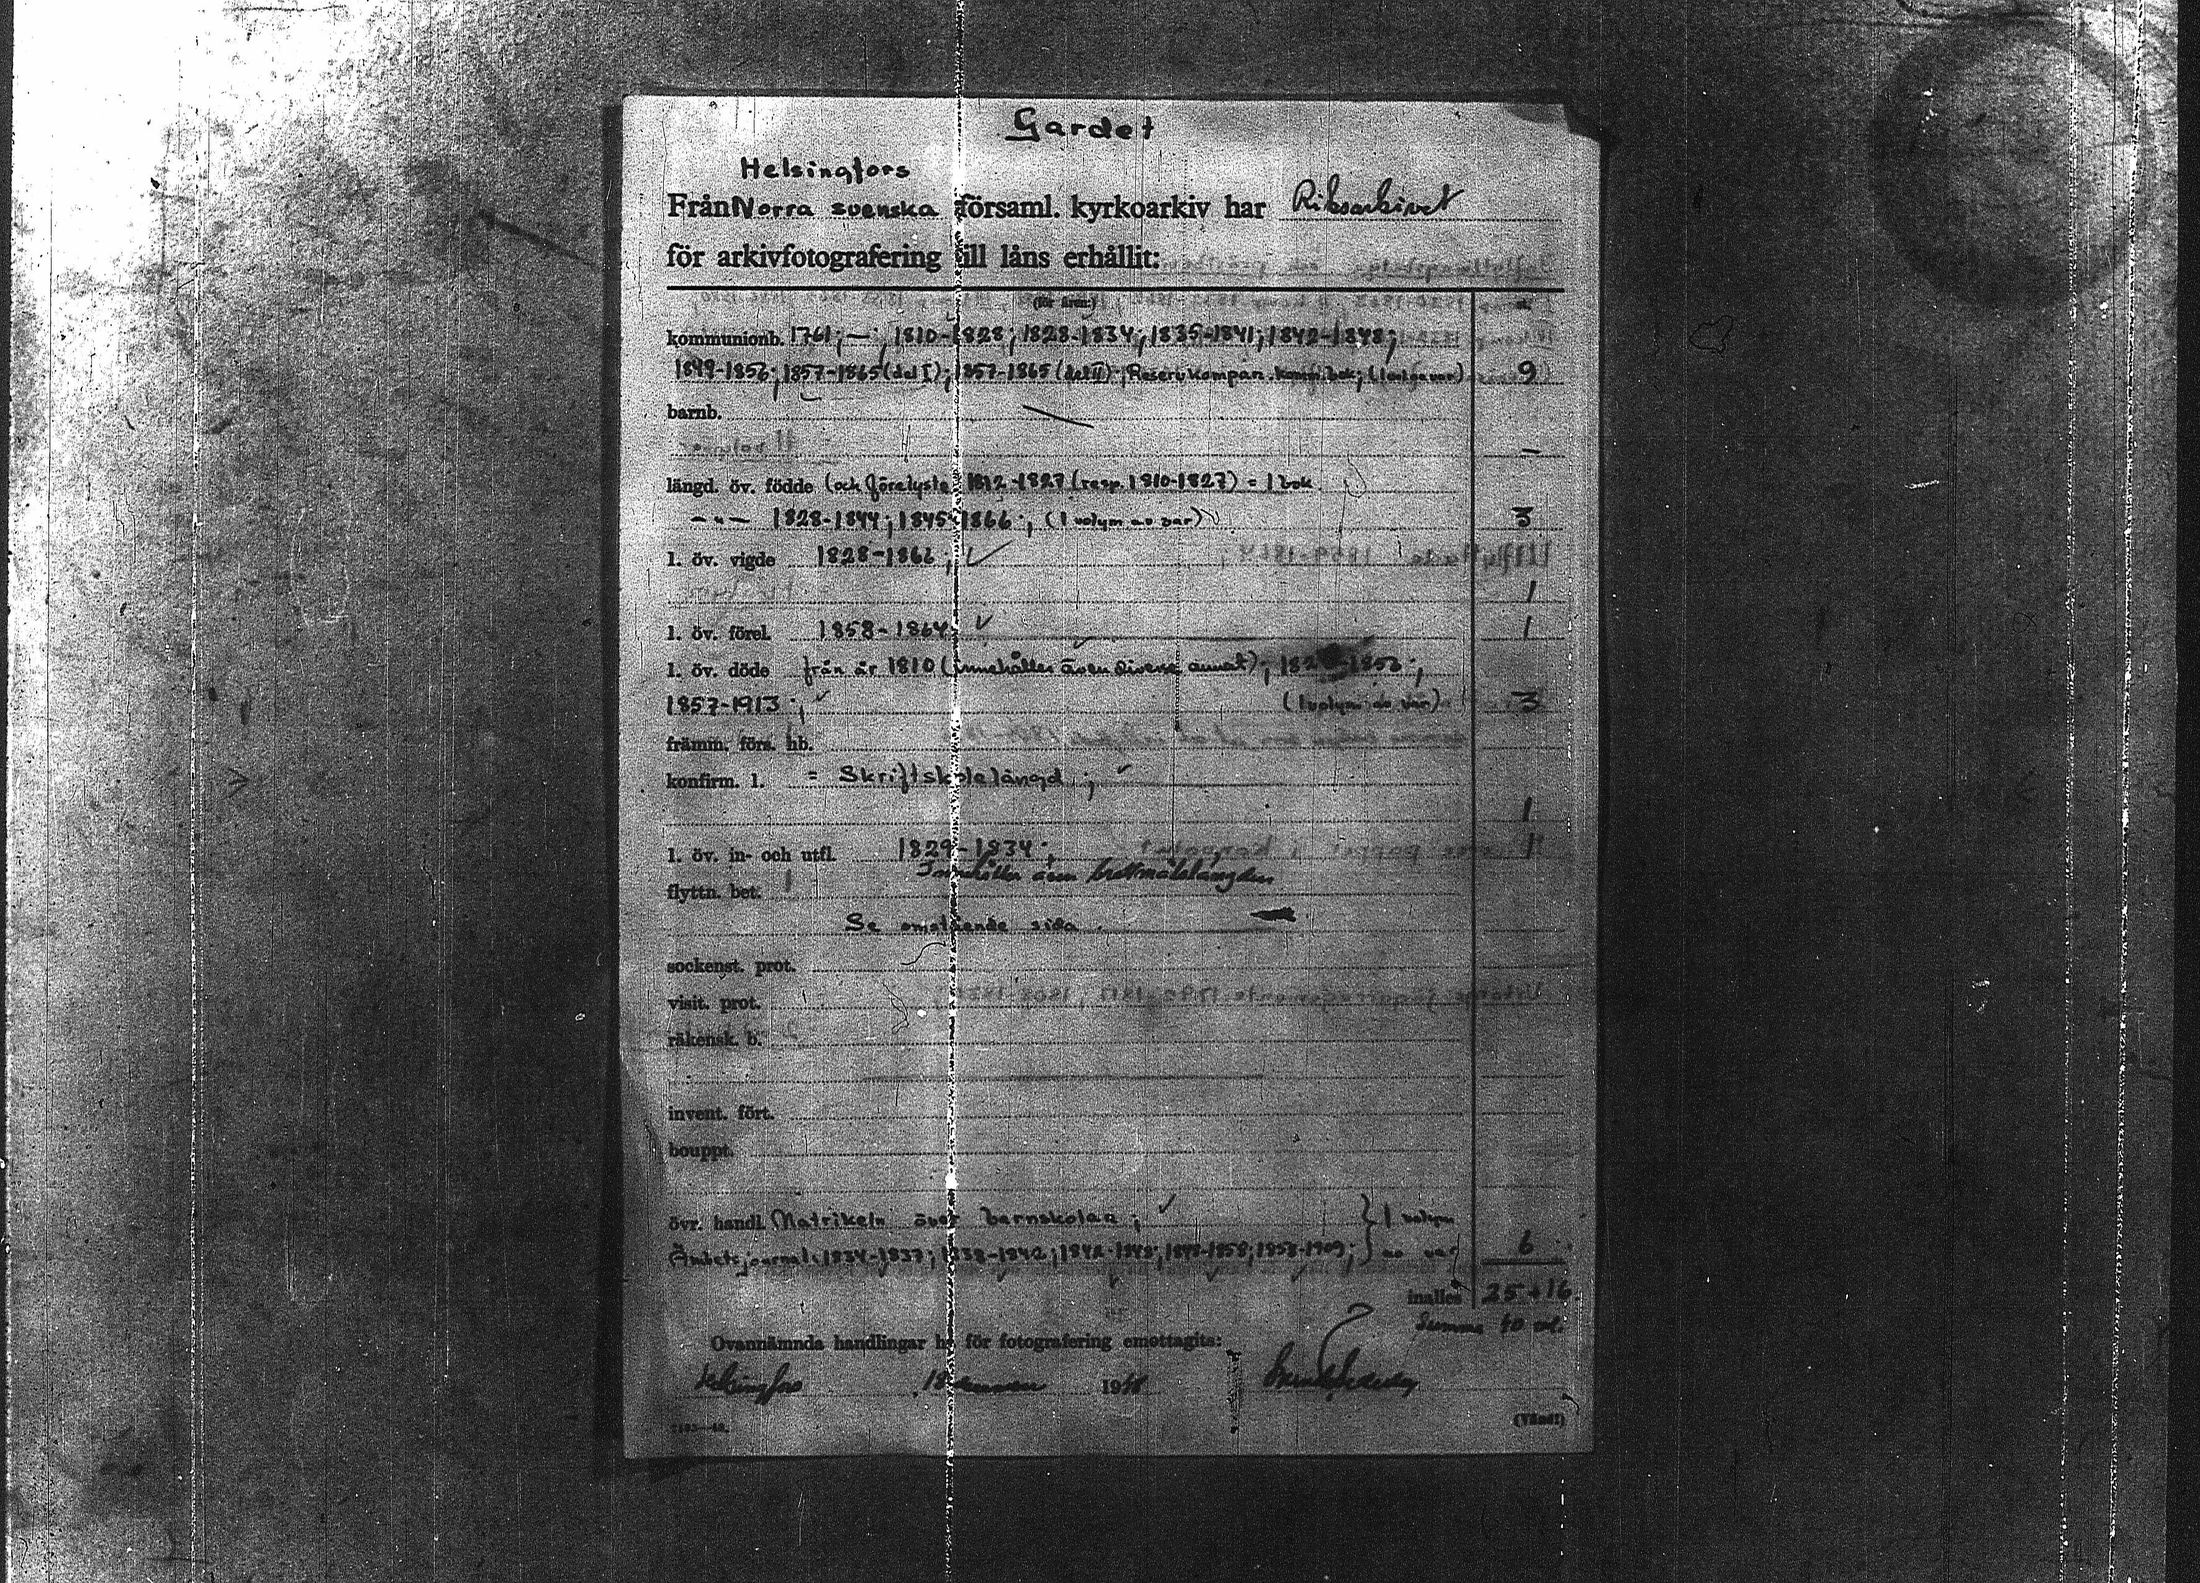 Gardet
Helsingfors
Från Norra svenska församl. kyrkoarkiv har Riksarkivet
för arkivfotografering till låns erhållit:
(för åren:)
kommunionb. 1761; —; 1810-1828; 1828-1834; 1835-1841; 1842-1848;
1849-1856; 1857-1865 (del I); 1857-1865 (del II); Reservkompan. komm. bok; 9
barnb.
—
längd. öv. födde (och förelysta 1812-1827 (resp. 1810-1827) = 1 bok
-"- 1828-1844; 1845-1866; (1 volym av var) 3
l. öv. vigde 1828-1866;
1
l. öv. förel. 1858-1864; 1
l. öv. döde från år 1810 (innehåller även diverse annat);
1857-1913; (1 volym av var) 3
främm. förs. hb.
konfirm. l. = Skriftskolelängd;
1
l. öv. in- och utfl. 1829-1834; 1
Innehåller även brottmålslängden
flyttn. bet.
Se omstående sida.
sockenst. prot.
visit. prot.
räkensk. b.
invent. fört.
bouppt.
övr. handl. Matrikeln över barnskolan; } 1 volym
Ämbetsjournal: 1834-1837; 1838-1842; 1842-1848; 1848-1858; 1858-1909; } av var 6
inalles 25+16
Summa 40 vol.
Ovannämnda handlingar ha för fotografering emottagits:
Helsingfors 19
(Vänd!)